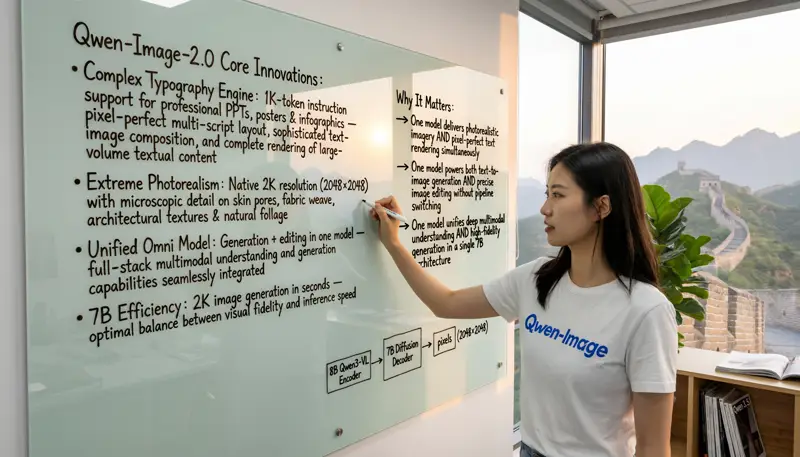 Qwen-Image-2.0 Core Innovations:
• Complex Typography Engine: 1K-token instruction
support for professional PPTs, posters & infographics —
pixel-perfect multi-script layout, sophisticated text-
image composition, and complete rendering of large-
volume textual content
• Extreme Photorealism: Native 2K resolution (2048×2048)
with microscopic detail on skin pores, fabric weave,
architectural textures & natural foliage
• Unified Omni Model: Generation + editing in one model —
full-stack multimodal understanding and generation
capabilities seamlessly integrated
• 7B Efficiency: 2K image generation in seconds —
optimal balance between visual fidelity and inference speed
Why It Matters:
→ One model delivers photorealistic
imagery AND pixel-perfect text
rendering simultaneously
→ One model powers both text-to-
image generation AND precise
image editing without pipeline
switching
→ One model unifies deep multimodal
understanding AND high-fidelity
generation in a single 7B
architecture
8B Qwen3-VL
Encoder
7B Diffusion
Decoder
pixels
(2048×2048)
Qwen-Image